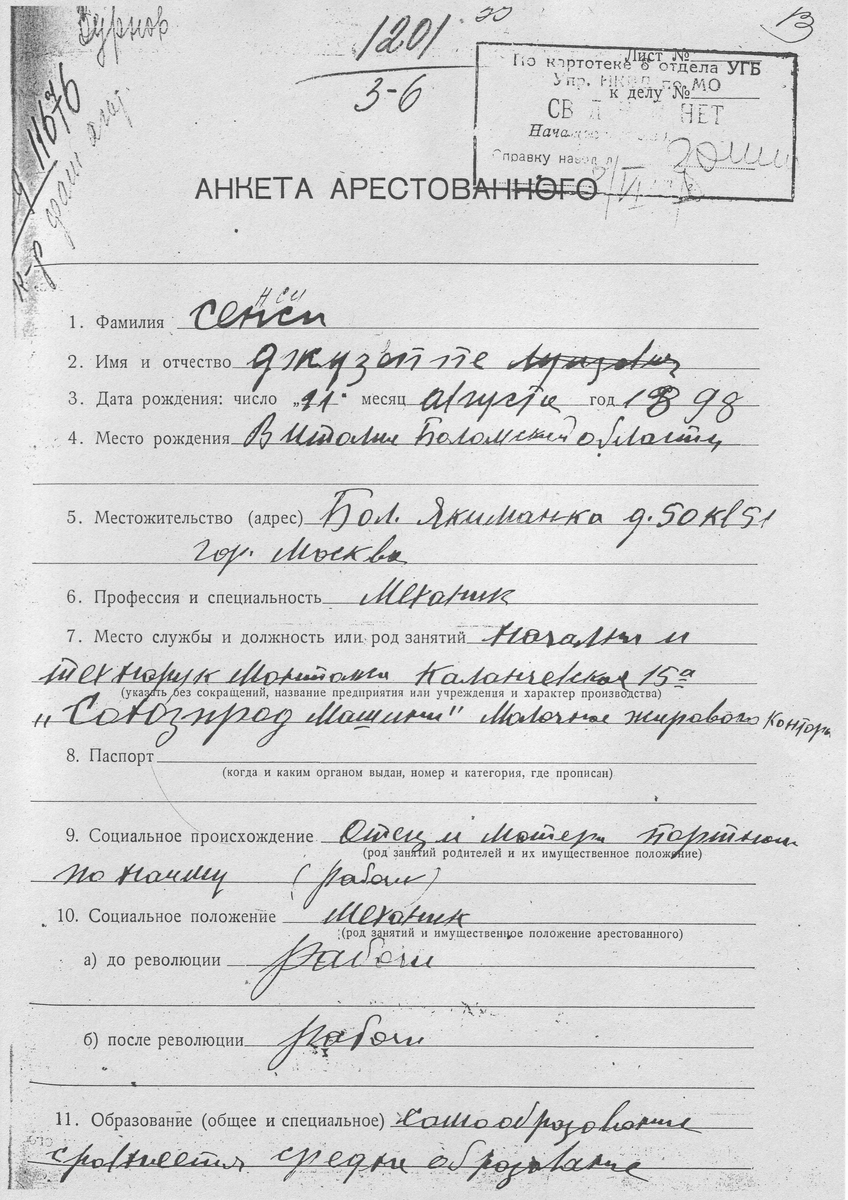 Зурнов
1201
3-6
13
11676
к-р фаш агит
Лист №
По картотеке 8 отдела УГБ
Упр. НКВД по МО
к делу №
СВЕДЕНИЙ НЕТ
Справку навел
АНКЕТА АРЕСТОВАННОГО
нси
1. Фамилия Сенси
2. Имя и отчество Джузеппе Луизович
3. Дата рождения: число „21" месяц августа год 1898
4. Место рождения В Италия Болонской области
5. Местожительство (адрес) Бол. Якиманка д. 50 кв 51
гор. Москва
6. Профессия и специальность Механик
7. Место службы и должность или род занятий начални и
технорук Монтажа Каланчевская 15а
(указать без сокращений, название предприятия или учреждения и характер производства)
„Союзпрод Машини" Молочно жирового контори
8. Паспорт
(когда и каким органом выдан, номер и категория, где прописан)
9. Социальное происхождение Отец и матери портном
(род занятий родителей и их имущественное положение)
по найму (рабочи)
10. Социальное положение Механик
(род занятий и имущественное положение арестованного)
а) до революции рабочи
б) после революции рабочи
11. Образование (общее и специальное) самообразование
сравняется средни образование